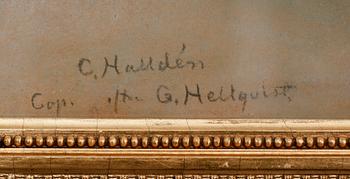 C. Halldén
Cop. G. Hellquist.